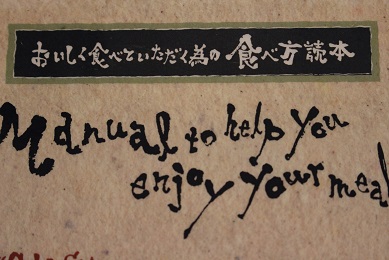 おいしく食べていただく為の 食べ方読本
Manual to help you
enjoy your meal